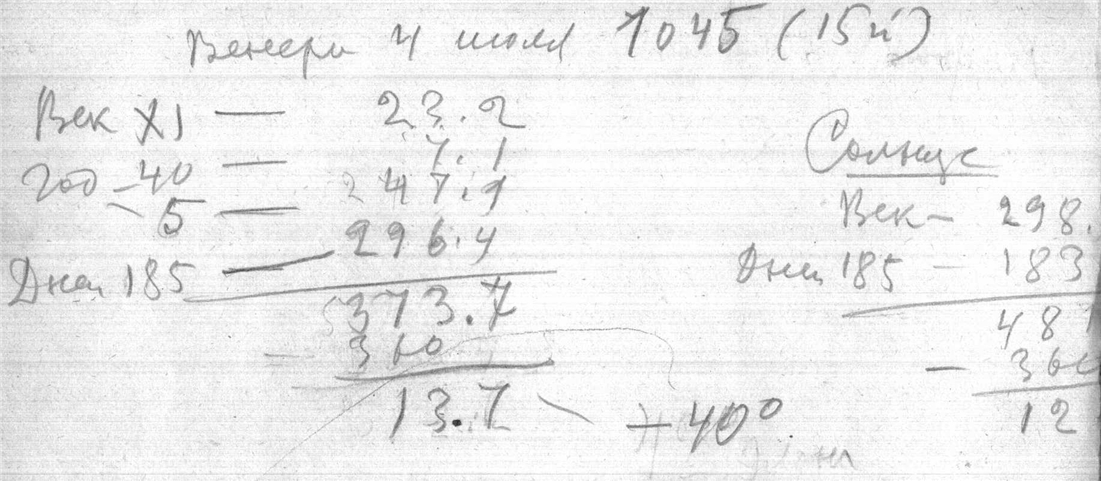 Венера 4 июля 1045 (15й)
Век XI — 23.2
7.1
Год – 40 — 247.9
5 —
296.4
Дней 185 —
373.7
– 360
13.7
+40°
Солнце
Век – 298.
Дней 185 – 183
481
– 360
12